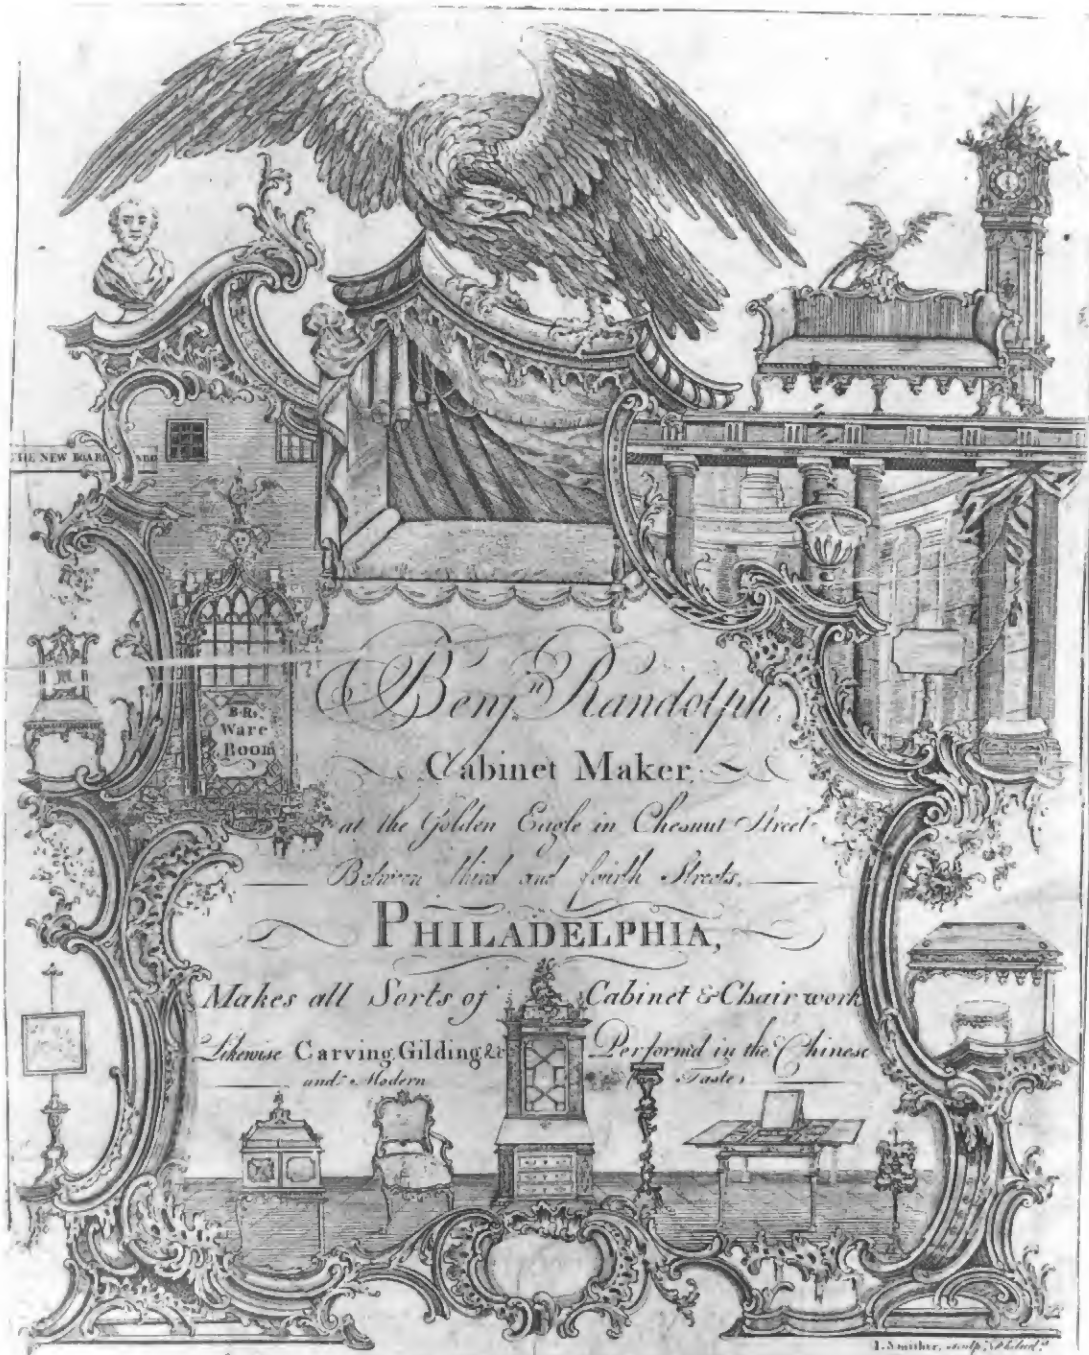 THE NEW BOARD YARD
B.Rs.
Ware
Room
Benjn. Randolph,
Cabinet Maker,
at the Golden Eagle in Chesnut Street
Between third and fourth Streets,
PHILADELPHIA,
Makes all Sorts of Cabinet & Chair work
Likewise Carving, Gilding &c Perform'd in the Chinese
and Modern Taste,
I. Smither, sculp.